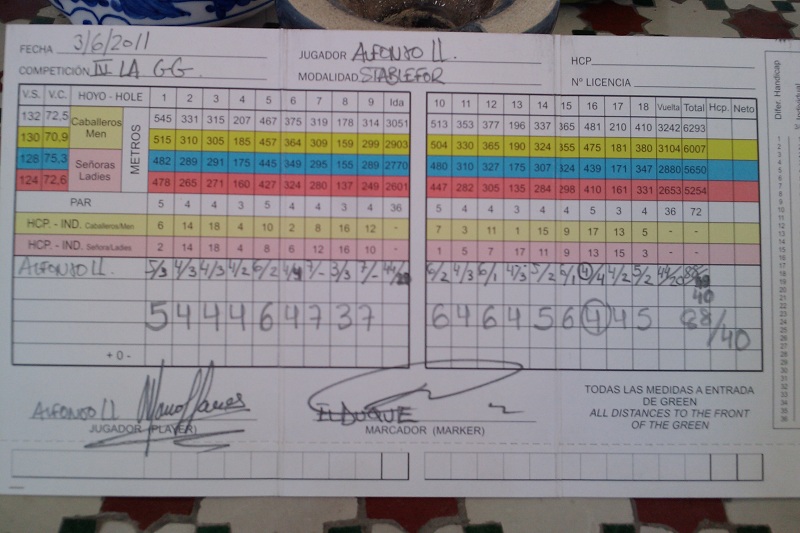 FECHA 3/6/2011
COMPETICIÓN IV LA GG.
JUGADOR ALFONSO LL.
MODALIDAD STABLEFOR
HCP
Nº LICENCIA
Difer Handicap
V.S. V.C. HOYO - HOLE 1 2 3 4 5 6 7 8 9 Ida 10 11 12 13 14 15 16 17 18 Vuelta Total Hcp. Neto
132 72,5 Caballeros Men METROS 545 331 315 207 467 375 319 178 314 3051 513 353 377 196 337 365 481 210 410 3242 6293
130 70,9 515 310 305 185 457 364 309 159 299 2903 504 330 365 190 324 355 475 181 380 3104 6007
128 75,3 Señoras Ladies 482 289 291 175 445 349 295 155 289 2770 480 310 327 175 324 439 171 347 2880 5650
124 72,6 478 265 271 160 427 324 280 137 249 2601 447 282 305 135 284 298 410 161 331 2653 5254
PAR 5 4 4 3 4 4 4 3 4 36 5 4 4 3 4 4 5 3 4 36 72
HCP. - IND. Caballeros/Men 6 14 18 4 10 2 8 16 12 - 7 3 11 1 15 9 17 13 5 - -
HCP. - IND. Señoras/Ladies 2 14 18 4 8 6 12 16 10 - 1 5 7 17 11 9 13 15 3 - -
ALFONSO LL. 5/3 4/3 4/3 4/2 6/2 7/- 3/3 7/- 6/2 4/3 6/1 4/3 5/2 6/1 4/4 4/2 5/2 44/20 88/
40
5 4 4 4 6 4 7 3 7 6 4 6 4 5 6 4 4 5 88/40
+ 0 -
ALFONSO LL
JUGADOR (PLAYER)
EL DUQUE
MARCADOR (MARKER)
TODAS LAS MEDIDAS A ENTRADA
DE GREEN
ALL DISTANCES TO THE FRONT
OF THE GREEN